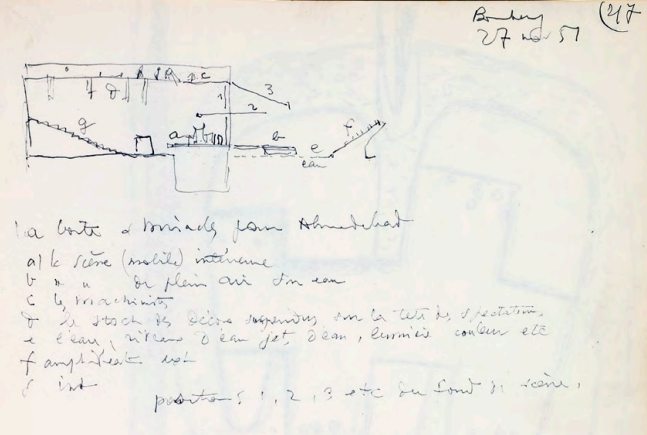 Bombay (47
27 nov 51
R C
3
1
2
f d
g
a b
b
e
eau
f
la boite à miracles pour Ahmedabad
a) la scène (mobile) intérieure
b " " de plein air sur eau
c les machinistes
d le stock des décors suspendus sur la tête des spectateurs
e l'eau, rideaux d'eau jets d'eau, lumière couleur etc
f amphithéatre ext
g int
positions 1, 2, 3 etc du fond de scène.